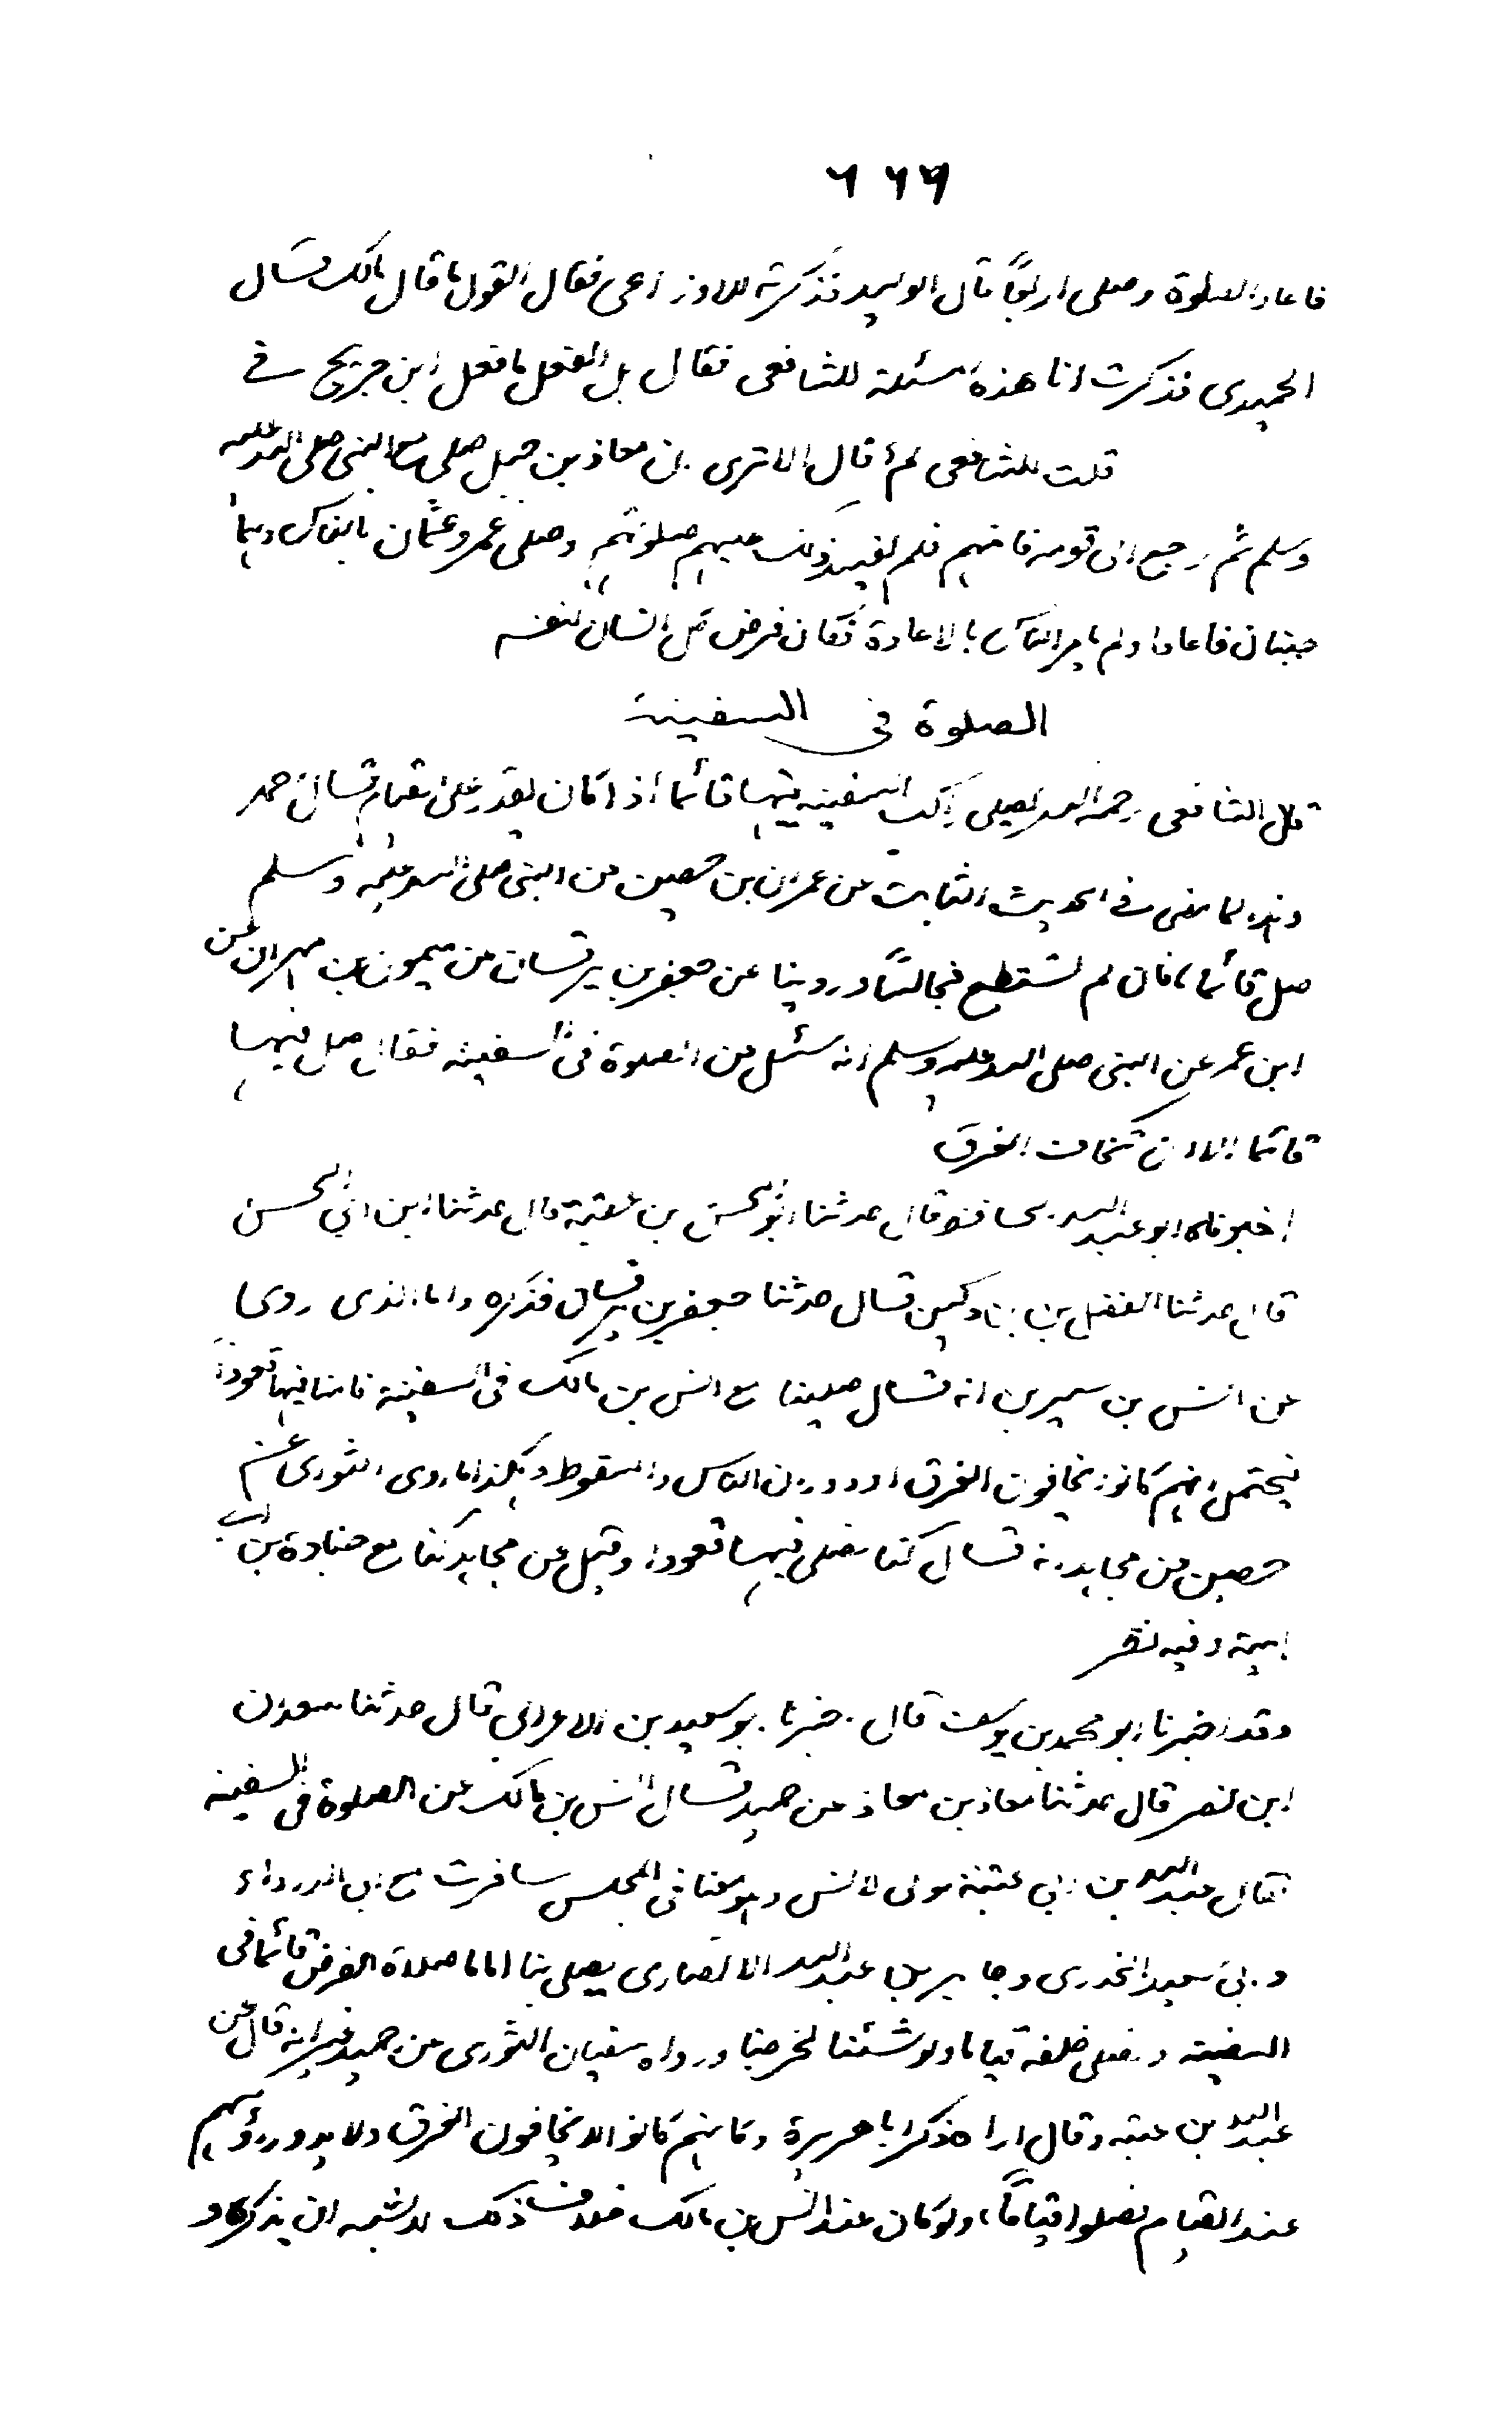 ٦٦٩
فاعاد الصلوة وصلى اربعًا قال الوليد فذكرته للاوزاعى فقال القول ما قال مالك قال
الحميدى فذكرت انا هذه المسئلة للشافعى فقال بل الفعل ما فعل ابن جريج فى
قلت للشافعى لم؟ قال الا ترى ان معاذ بن جبل صلى مع النبى صلى الله عليه
وسلم ثم رجع الى قومه فامهم فلم يفسد ذلك عليهم صلوتهم وصلى عمر وعثمان بالناس وهما
جنبان فاعادا ولم يامر الناس بالاعادة فكان فرض كل انسان لنفسه
الصلوة فى السفينة
قال الشافعى رحمه الله يصلى راكب السفينة فيها قائما اذا كان يقدر على القيام قال احمد
وهذا لما مضى فى الحديث الثابت عن عمران بن حصين عن النبى صلى الله عليه وسلم
صل قائما، فان لم تستطع فجالسًا وروينا عن جعفر بن برقان عن ميمون بن مهران عن
ابن عمر عن النبى صلى الله عليه وسلم انه سئل عن الصلوة فى السفينة فقال صل فيها
قائما الا ان تخاف الغرق
اخبرناه ابو عبد الله الحافظ قال حدثنا ابو الحسن بن عقبة قال حدثنا ابن ابى الحسن
قال حدثنا الفضل بن دكين قال حدثنا جعفر بن برقان فذكره واما الذى روى
عن انس بن سيرين انه قال صلينا مع انس بن مالك فى السفينة فامنا فيها قعودا
فيحتمل انهم كانوا يخافون الغرق او دوران الراس والسقوط وهكذا ما روى الثورى عن
حصين عن مجاهد انه قال كنا نصلى فيها قعودا وقيل عن مجاهد كنا مع جنادة بن ابى
امية وفيه نظر
وقد اخبرنا ابو محمد بن يوسف قال اخبرنا ابو سعيد بن الاعرابى قال حدثنا سعدان
ابن نصر قال حدثنا معاذ بن معاذ عن حميد قال سئل انس بن مالك عن الصلوة فى السفينة
فقال عبد الله بن ابى عتبة مولى لانس وهو معنا فى المجلس سافرت مع ابى الدرداء
وابى سعيد الخدرى وجابر بن عبد الله الانصارى يصلى بنا امامنا صلاة الفرض قائما فى
السفينة ونصلى خلفه قياما ولو شئنا لخرجنا ورواه سفيان الثورى عن حميد غير انه قال عن
عبد الله بن عتبة وقال اراه ذكر ابا هريرة وكانهم كانوا لا يخافون الغرق ولا يدور رؤسهم
عند القيام فصلوا قياما، ولو كان عند انس بن مالك خلاف ذلك لاشبه ان يذكره و